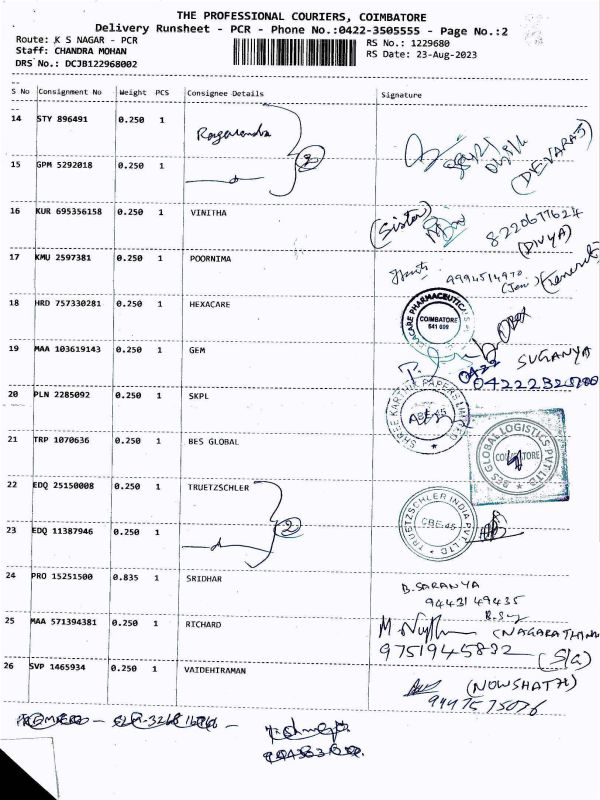 THE PROFESSIONAL COURIERS, COIMBATORE
Delivery Runsheet - PCR - Phone No.:0422-3505555 - Page No.:2
Route: K S NAGAR - PCR
RS No.: 1229680
Staff: CHANDRA MOHAN
RS Date: 23-Aug-2023
DRS No.: DCJB122968002
S No Consignment No Weight PCS Consignee Details Signature
14 STY 896491 0.250 1 Ragavendra
2
(DEVARAJ)
15 GPM 5292018 0.250 1
16 KUR 695356158 0.250 1 VINITHA (Sister) 8220677624
(DIVYA)
17 KMU 2597381 0.250 1 POORNIMA 9994514970
18 HRD 757330281 0.250 1 HEXACARE
PHARMACEUTICALS
COIMBATORE
641 009
19 MAA 103619143 0.250 1 GEM SUGANYA
0422
20 PLN 2285092 0.250 1 SKPL
PAPERS LIMITED
21 TRP 1070636 0.250 1 BES GLOBAL
BES GLOBAL LOGISTICS PVT LTD
COIMBATORE
22 EDQ 25150008 0.250 1 TRUETZSCHLER
2
TRUETZSCHLER INDIA PVT. LTD
CBE-45
23 EDQ 11387946 0.250 1
24 PRO 15251500 0.835 1 SRIDHAR B. SARANYA
9443149435
25 MAA 571394381 0.250 1 RICHARD
9751945832 (S/a)
26 SVP 1465934 0.250 1 VAIDEHIRAMAN (NOWSHATH)